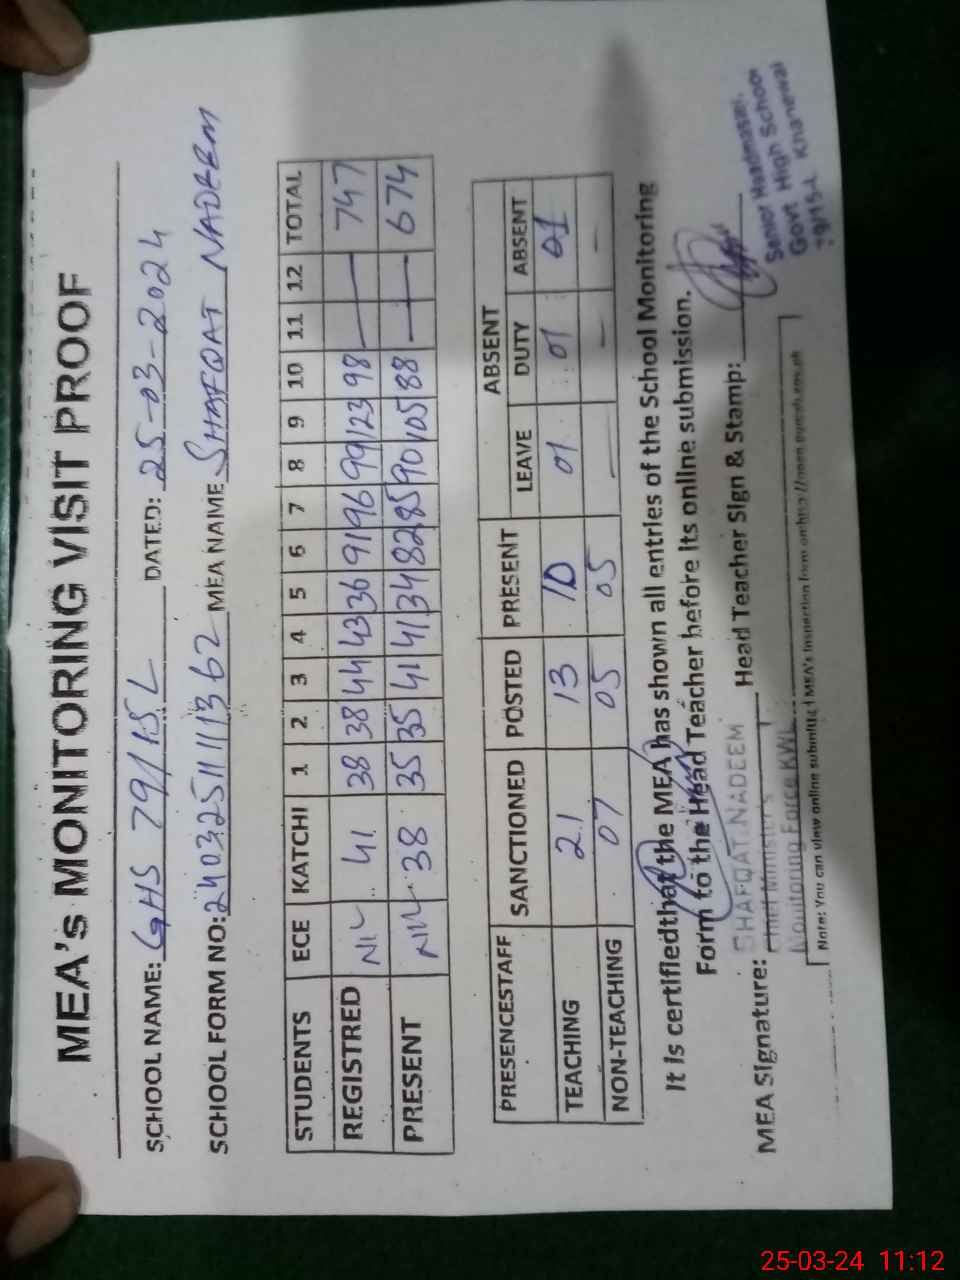 MEA's MONITORING VISIT PROOF
SCHOOL NAME: GHS 79/15L DATED: 25-03-2024
SCHOOL FORM NO: 2403251111362 MEA NAME SHAFQAT NADEEM
STUDENTS ECE KATCHI 1 2 3 4 5 6 7 8 9 10 11 12 TOTAL
REGISTRED NIL 41 38 38 44 43 36 91 96 99 123 98 — — 747
PRESENT NIL 38 35 35 41 41 34 82 85 90 105 88 — — 674
PRESENCESTAFF SANCTIONED POSTED PRESENT ABSENT
LEAVE DUTY ABSENT
TEACHING 21 13 10 01 01 01
NON-TEACHING 07 05 05 — — —
It Is certifiedthat the MEA has shown all entries of the School Monitoring
Form to the Head Teacher before its online submission.
MEA Signature: Head Teacher Sign & Stamp:
SHAFQAT NADEEM
Chief Minister's
Monitoring Force KWL
Senior Headmaster,
Govt High School
79/15-L Khanewal
Note: You can view online submitted MEA's Inspection form on
25-03-24 11:12